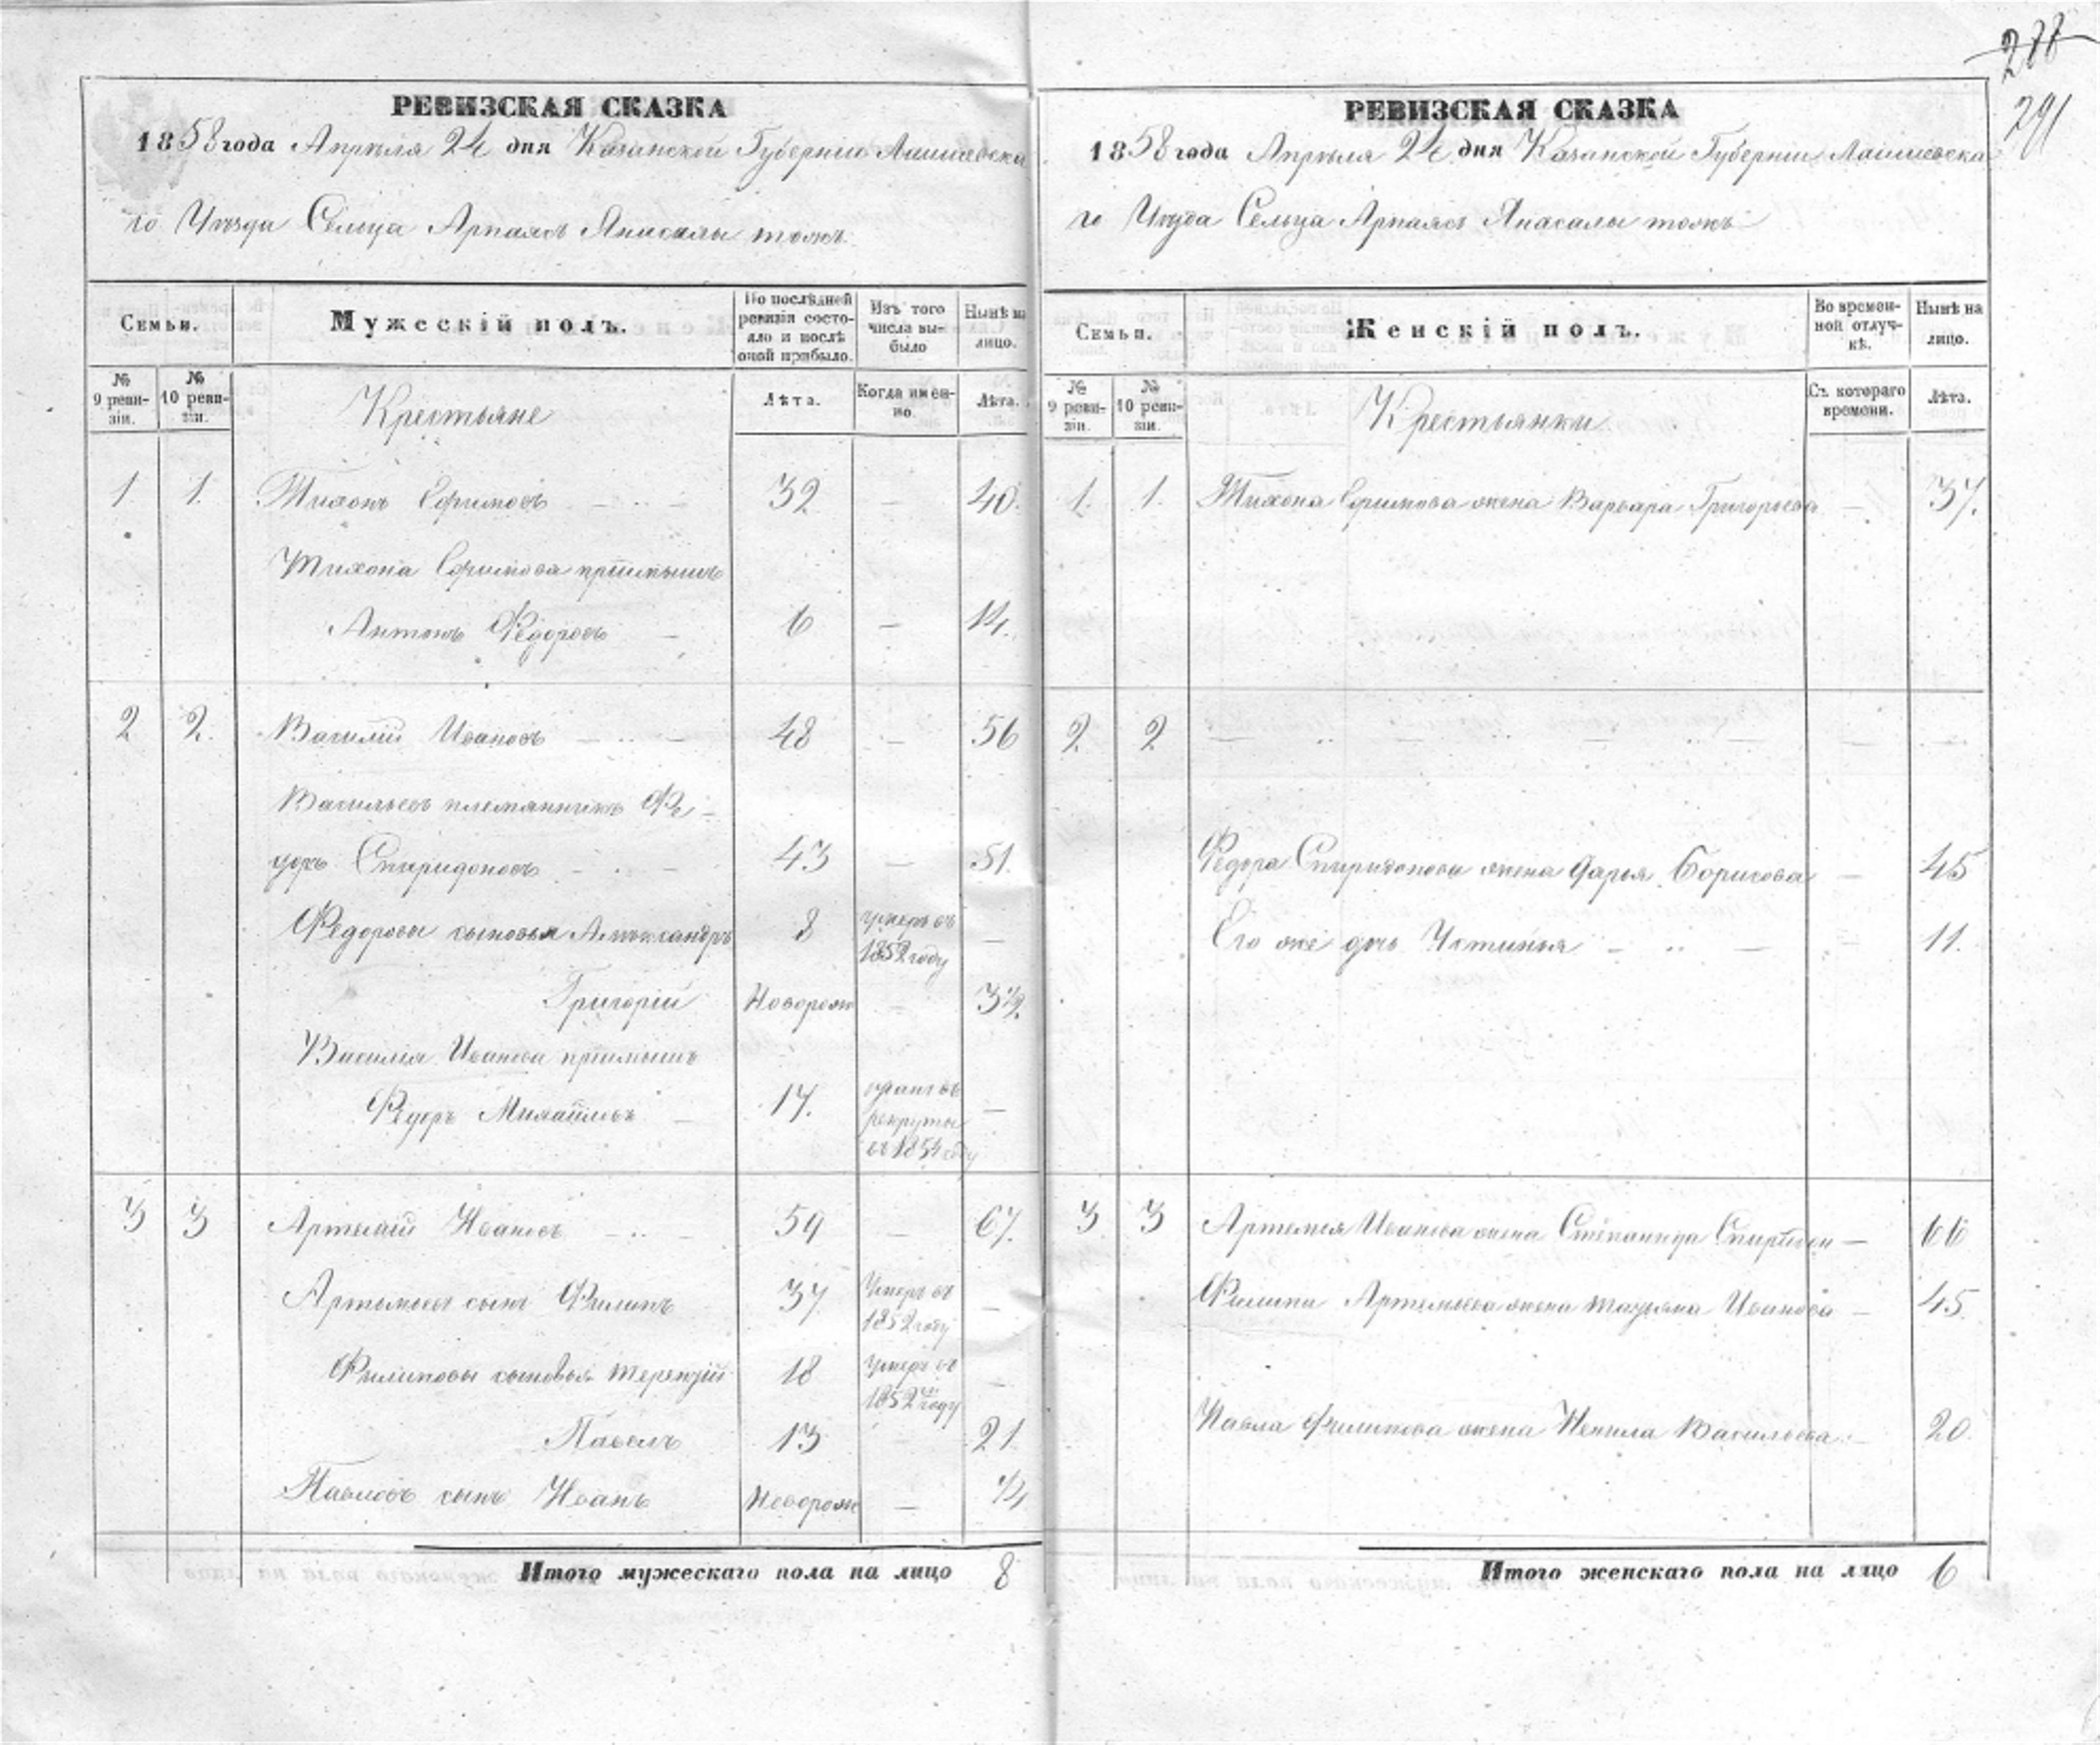 288
291
РЕВИЗСКАЯ СКАЗКА
1858 года Апрѣля 24 дня Казанской Губерніи Лаишевска
го Уѣзда Сельца Арпаясъ Янасалы тожъ
Семьи.
Мужескій полъ.
По послѣдней ревизіи состояло и послѣ оной прибыло.
Изъ того числа выбыло
Нынѣ на лицо.
№ 9 ревизіи.
№ 10 ревизіи.
Крестьяне
Лѣта.
Когда именно.
Лѣта.
1. 1. Тихонъ Ефимовъ 32 — 40.
Тихона Ефимова пріимышъ
Антонъ Федоровъ — 6 — 14.
2 2. Василій Ивановъ 48 — 56
Васильевъ племянникъ Фе-
доръ Спиридоновъ 43 — 51.
Федоровы сыновья Алекксандръ 8 умеръ въ 1852 году —
Григорій Новорож — 3½.
Василія Иванова пріимышъ
Федоръ Михайловъ — 17. отданъ въ рекруты въ 1854 году —
3 3 Артемій Ивановъ 59 — 67.
Артемьевъ сынъ Филипъ 37 Умеръ въ 1852 году —
Филиповы сыновья Терентій 18 Умеръ въ 1852 году —
Павелъ 13 21
Павловъ сынъ Иванъ Новорож — ¼
Итого мужескаго пола на лицо 8
РЕВИЗСКАЯ СКАЗКА
1858 года Апрѣля 24 дня Казанской Губерніи Лаишевска
го Уѣзда Сельца Арпаясъ Янасалы тожъ
Семьи.
Женскій полъ.
Во временной отлучкѣ.
Нынѣ на лицо.
№ 9 ревизіи.
№ 10 ревизіи.
Крестьянки
Съ котораго времени.
Лѣта.
1. 1. Тихона Ефимова жена Варвара Григорьева — 37.
2. 2 — — — —
Федора Спиридонова жена Дарья Борисова — 45
Его же дочь Устинья — 11.
3 3 Артемья Иванова жена Степанида Спиридон — 66
Филипа Артемьева жена Татьяна Иванова — 45.
Павла Филипова жена Ненила Васильева — 20.
Итого женскаго пола на лицо 6